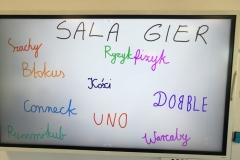 SALA GIER
Szachy
Ryzykfizyk
Blokus
Kości
Conneck
DOBBLE
UNO
Rummikub
Warcaby